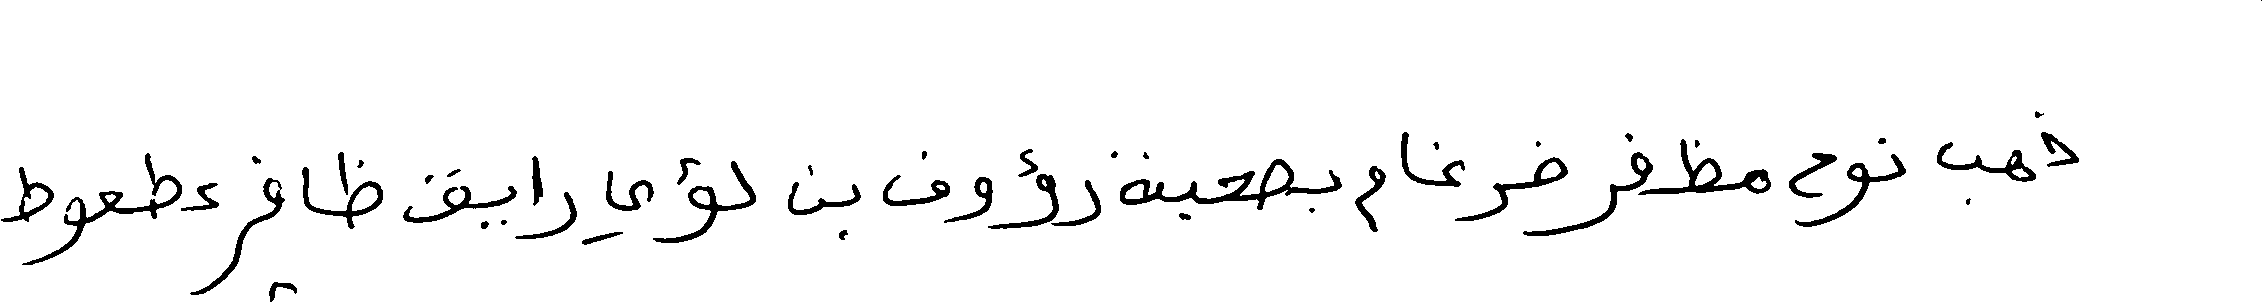 ذهب نوح مظفر ضرغام بصحبة رؤوف بن لؤي رايق ظافر عطعوط